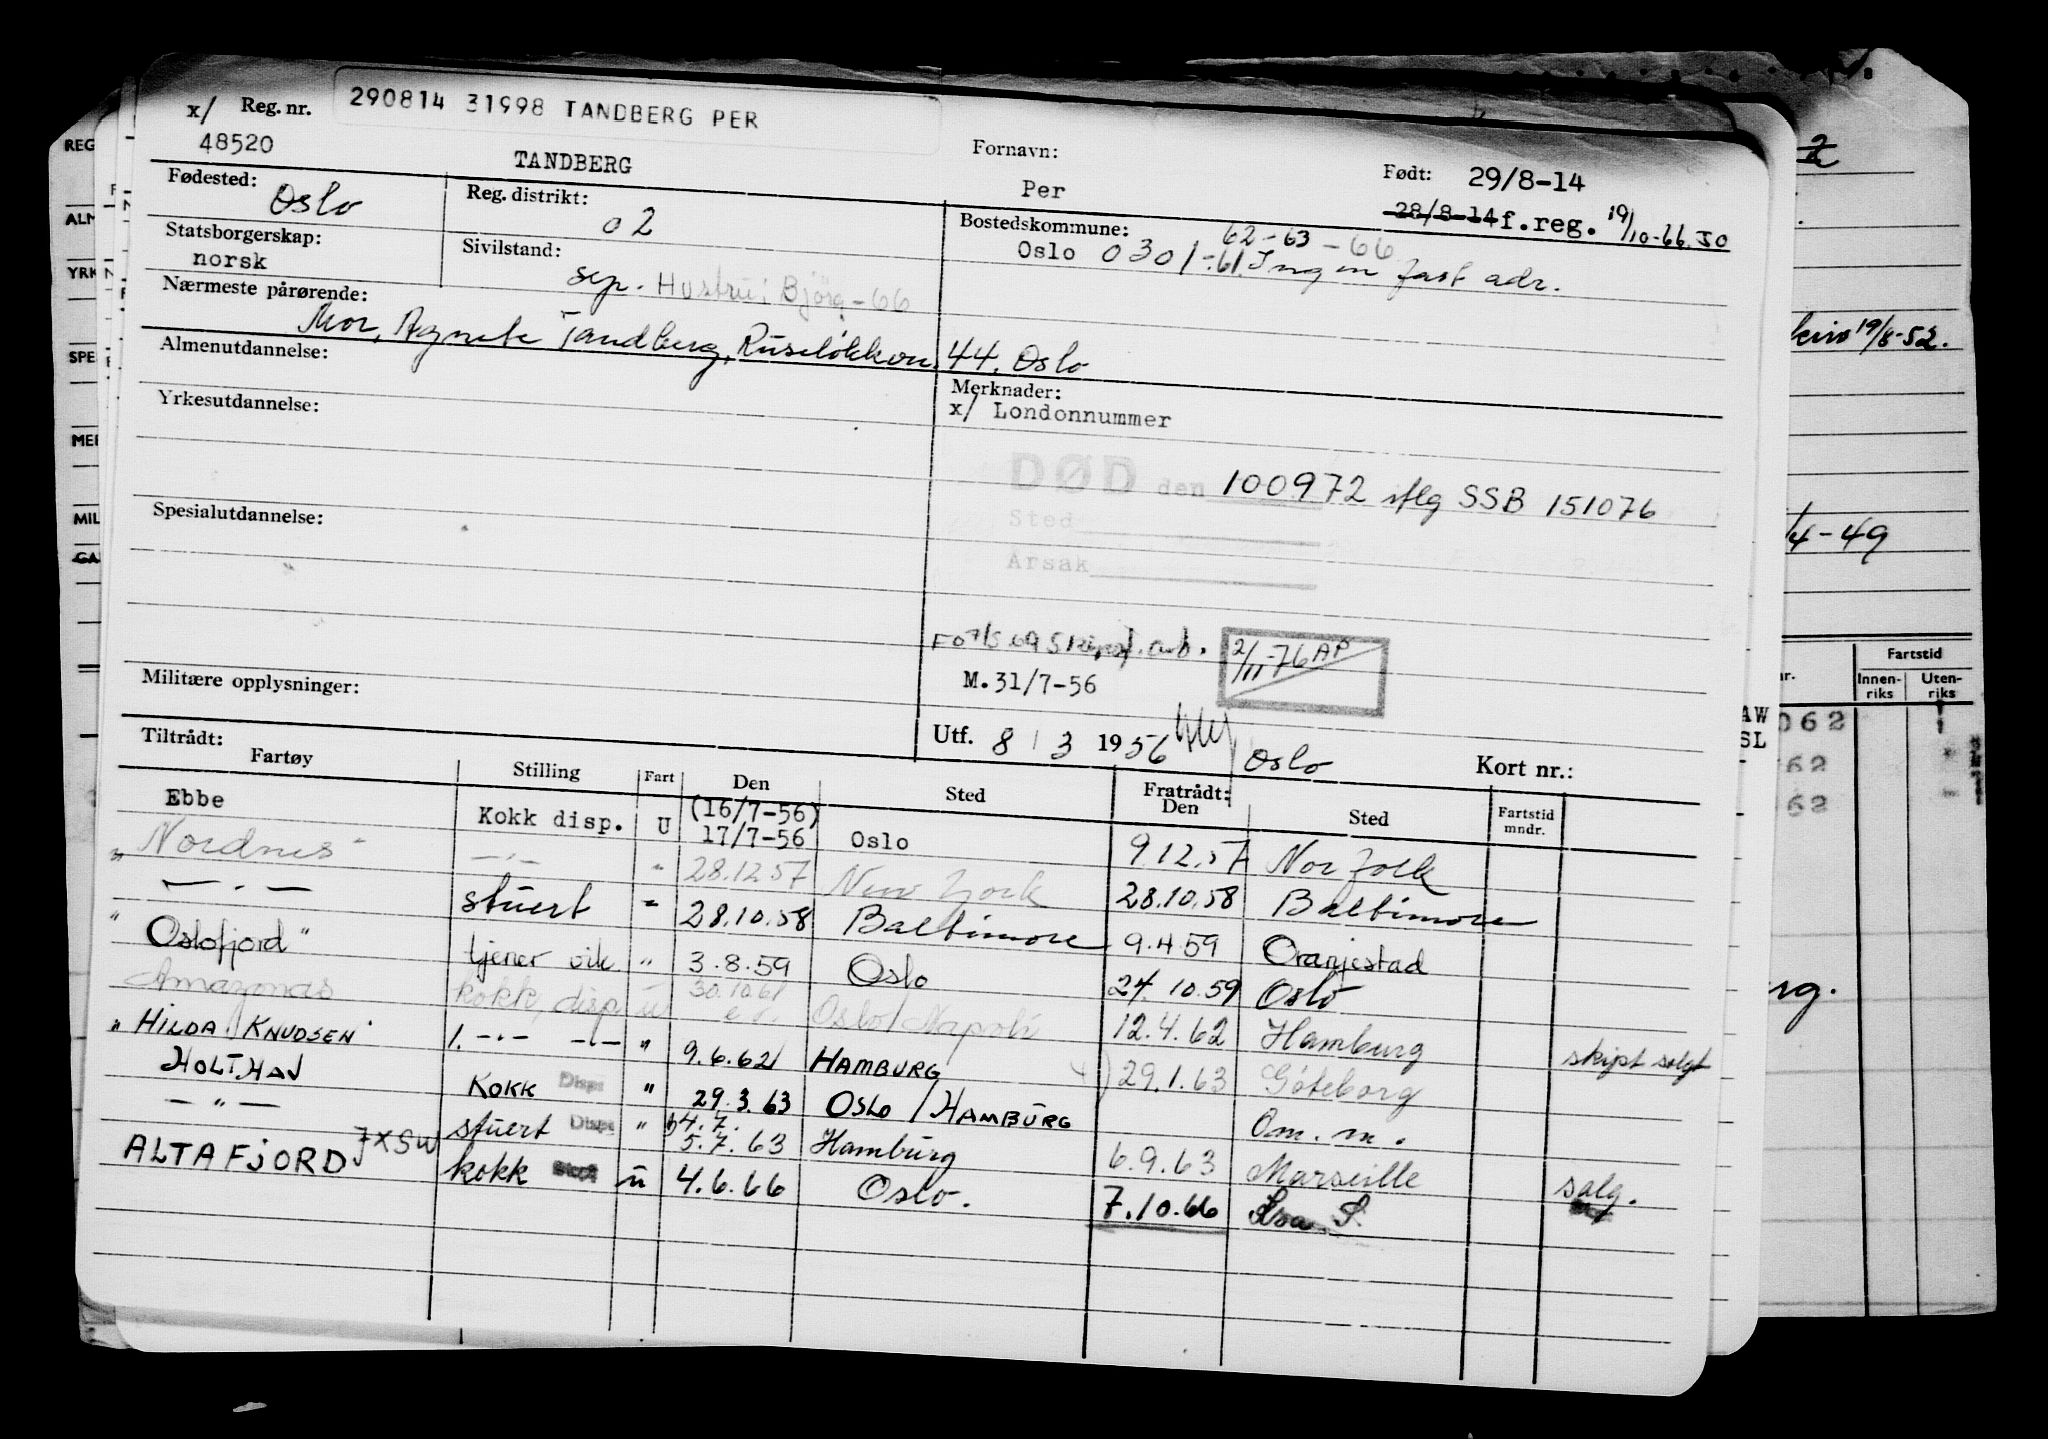 x/ Reg. nr. 290814 31998 TANDBERG PER
48520 TANDBERG Fornavn: Per Født: 29/8-14
28/8-14 f.reg. 19/10-66 JO
Fødested: Oslo Reg. distrikt: 02 Bostedskommune: 62-63-66
Oslo 0301 -61. Ingen fast adr.
Statsborgerskap: norsk Sivilstand: sep. Hustru: Bjørg-66
Nærmeste pårørende: Mor, Agnete Tandberg, Ruseløkkvn. 44, Oslo
Almenutdannelse:
Merknader:
x/ Londonnummer
Yrkesutdannelse:
DØD den 100972 iflg SSB 151076
Sted
Årsak
Spesialutdannelse:
FO 7/5 69 arb. 2/11-76 AP
M.31/7-56
Militære opplysninger:
Utf. 8/3 1956 Oslo Kort nr.:
Tiltrådt: Fartøy Stilling Fart Den Sted Fratrådt: Den Sted Fartstid mndr.
Ebbe Kokk disp. U (16/7-56) 17/7-56 Oslo 9.12.57 Norfolk
" Nordnes " —"— " 28.12.57 New York 28.10.58 Baltimore
—"— stuert " 28.10.58 Baltimore 9.4.59 Oranjestad
" Oslofjord " tjener vik. " 3.8.59 Oslo 24.10.59 Oslo
Amazonas kokk, disp u 30.10.61 Oslo/Napoli 12.4.62 Hamburg
" HILDA KNUDSEN " 1. —"— —"— " 9.6.62 HAMBURG 29.1.63 Göteborg skipt solgt
HOLTHAV KOKK Disps " 29.3.63 OSLO/HAMBURG Om. m.
—"— stuert Disps " 4.7. 5.7.63 Hamburg 6.9.63 Marseille salg.
ALTAFJORD JXSW kokk u 4.6.66 Oslo. 7.10.66
REG
ALM
YRK
SPE
MIL
19/6-52.
/4-49
Fartstid
Innen-riks Uten-riks
AW 062
SL
62
62
rg.